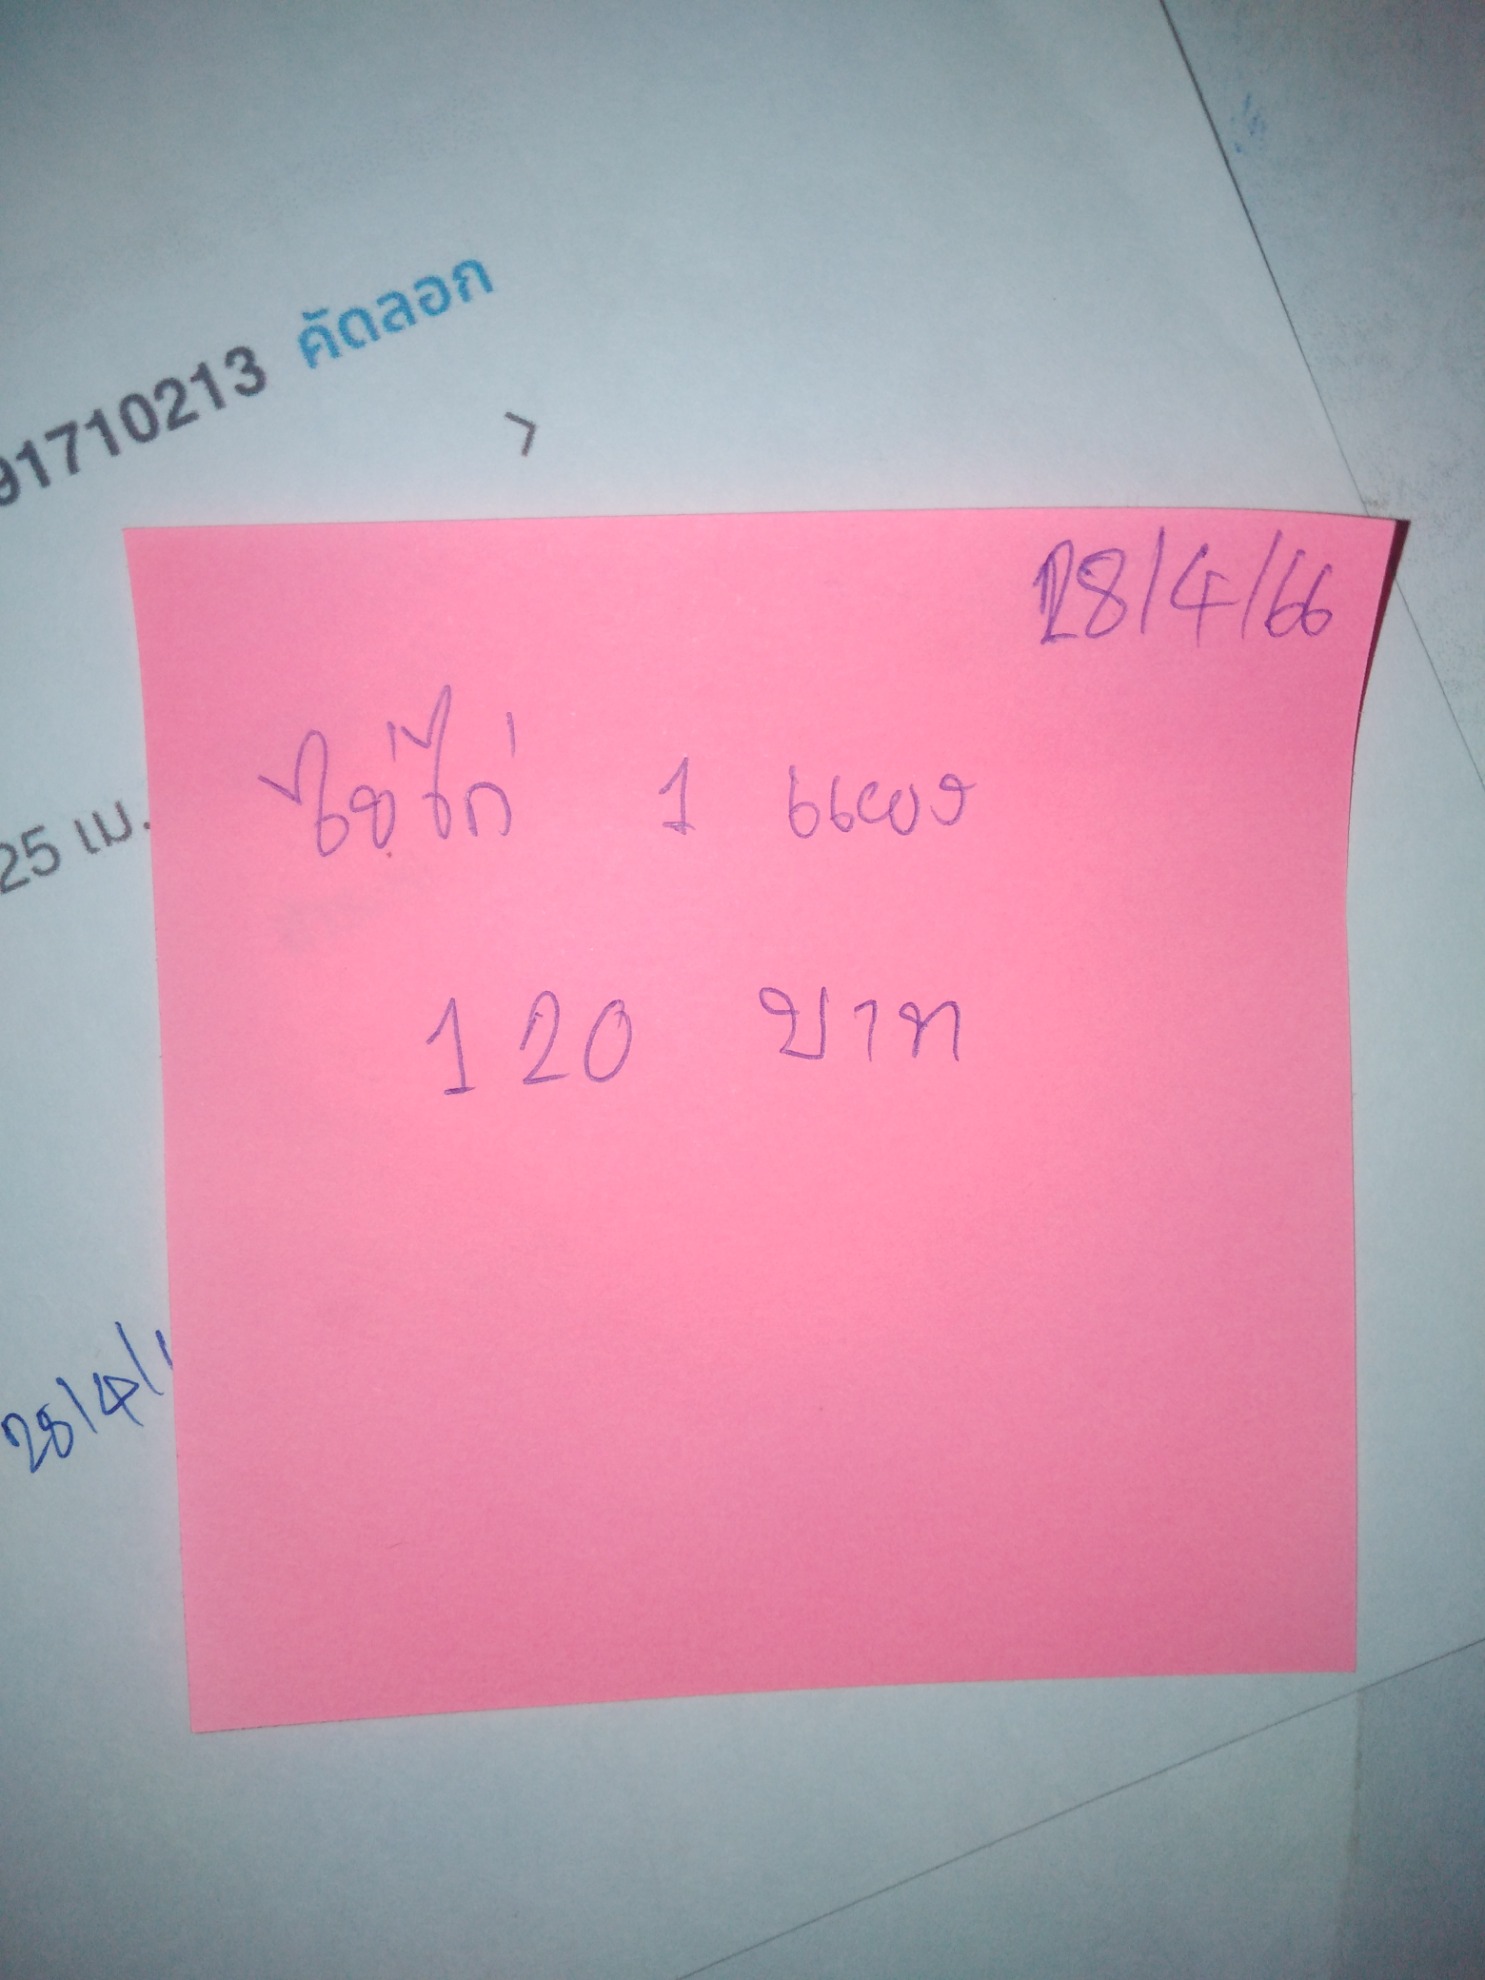 91710213 คัดลอก
>
28/4/66
ไข่ไก่ 1 แผง
25 เม.
120 บาท
28/4/